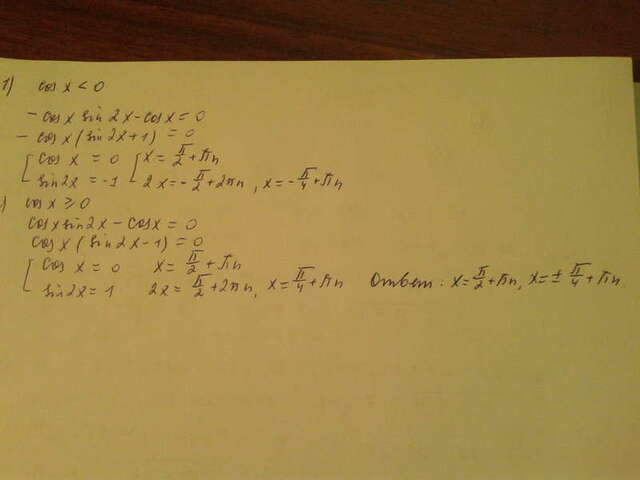 1) cos x < 0
- cos x sin 2x - cos x = 0
- cos x (sin 2x + 1) = 0
[ cos x = 0 [ x = π/2 + πn
sin 2x = -1 2x = -π/2 + 2πn, x = -π/4 + πn
) cos x ⩾ 0
cos x sin 2x - cos x = 0
cos x (sin 2x - 1) = 0
[ cos x = 0 x = π/2 + πn
sin 2x = 1 2x = π/2 + 2πn, x = π/4 + πn Ответ: x = π/2 + πn, x = ± π/4 + πn